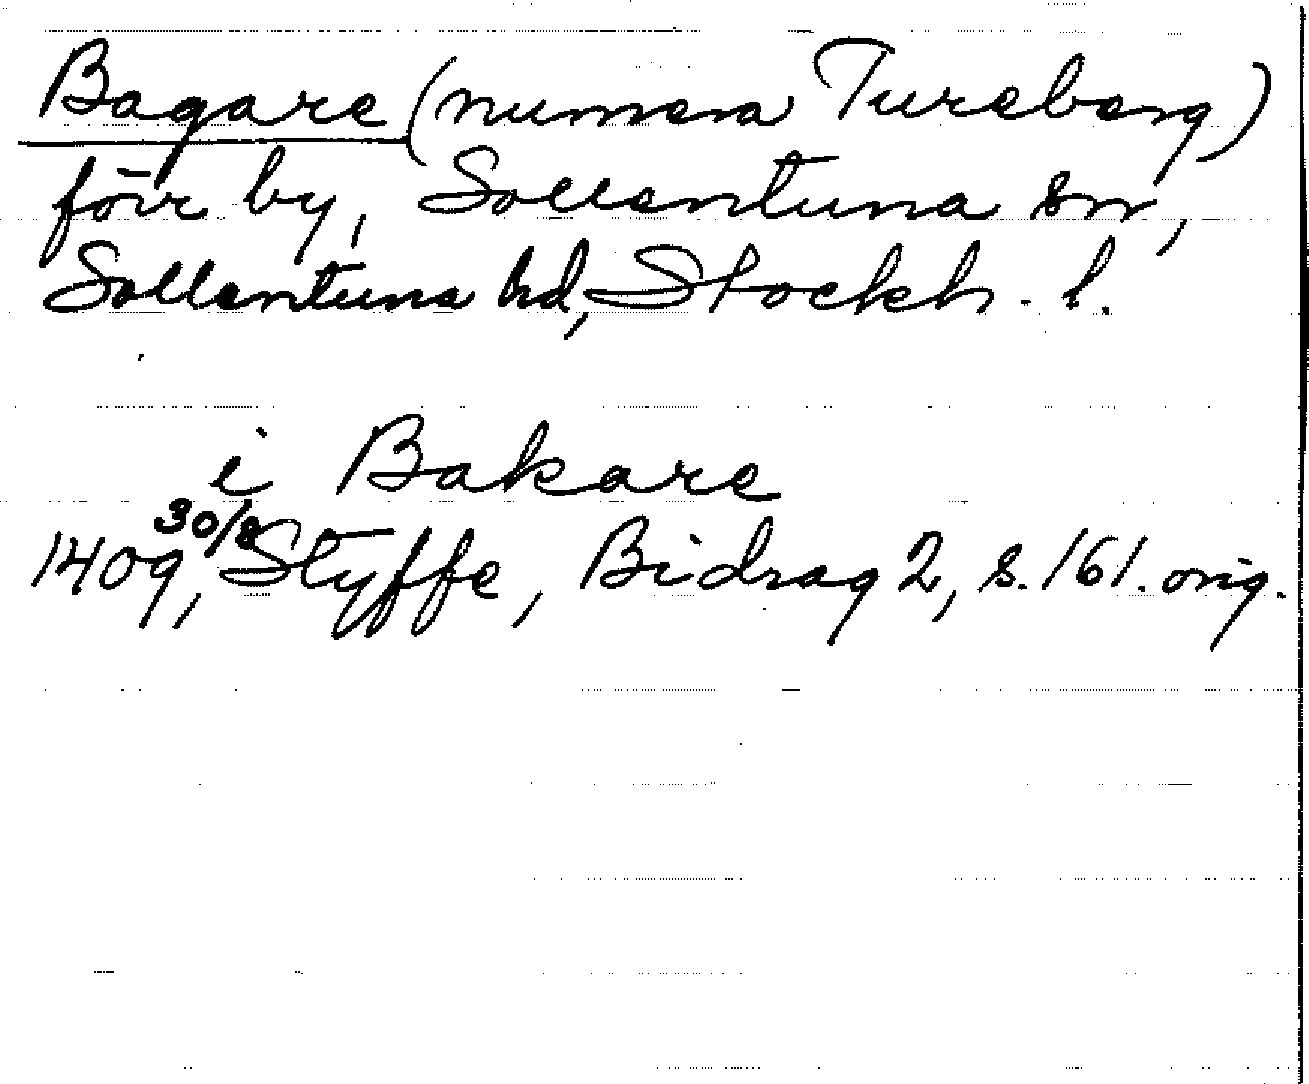 Bagare (numera Tureberg)
förr by, Sollentuna sn,
Sollentuna hd, Stockh. l.
i Bakare
1409 30/8, Styffe, Bidrag 2, s. 161. orig.